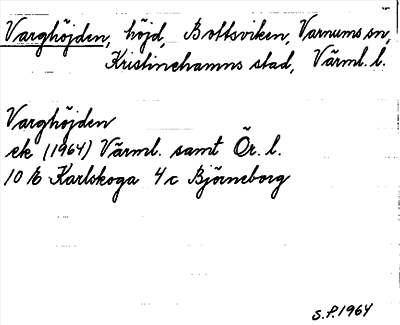 Varghöjden, höjd, Bottsviken, Varnums sn,
Kristinehamns stad, Värml. l.
Varghöjden
ek (1964) Värml. samt Ör. l.
10 E Karlskoga 4 c Björneborg
S.P. 1964